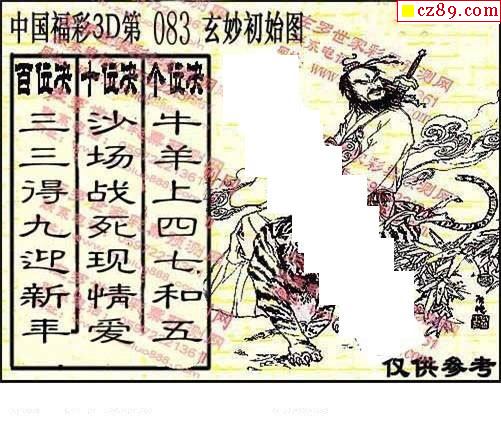 cz89.com
中国福彩3D第 083 玄妙初始图
百位决
三三得九迎新年
十位决
沙场战死现情爱
个位决
牛羊上四七和五
仅供参考